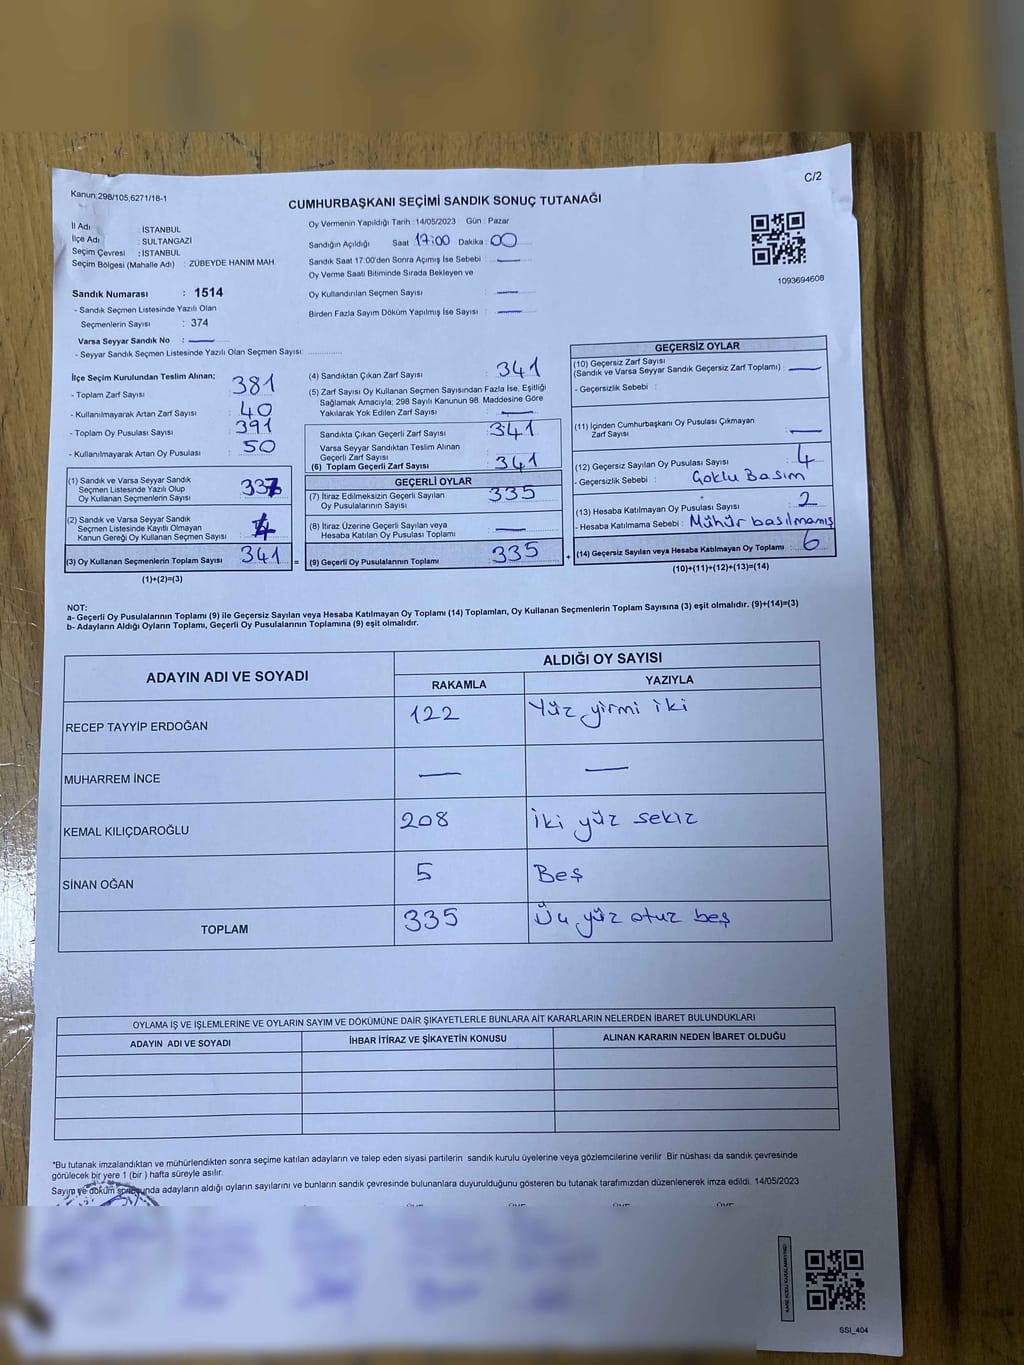 C/2
Kanun;298/105,6271/18-1
CUMHURBAŞKANI SEÇİMİ SANDIK SONUÇ TUTANAĞI
İl Adı : İSTANBUL
İlçe Adı : SULTANGAZİ
Seçim Çevresi : İSTANBUL
Seçim Bölgesi (Mahalle Adı) : ZÜBEYDE HANIM MAH.
Sandık Numarası : 1514
- Sandık Seçmen Listesinde Yazılı Olan
Seçmenlerin Sayısı : 374
Varsa Seyyar Sandık No : —
- Seyyar Sandık Seçmen Listesinde Yazılı Olan Seçmen Sayısı: ............
Oy Vermenin Yapıldığı Tarih : 14/05/2023 Gün : Pazar
Sandığın Açıldığı Saat 17:00 Dakika : 00
Sandık Saat 17:00'den Sonra Açımış İse Sebebi : —
Oy Verme Saati Bitiminde Sırada Bekleyen ve
Oy Kullandırılan Seçmen Sayısı : —
Birden Fazla Sayım Döküm Yapılmış İse Sayısı : —
1093694608
İlçe Seçim Kurulundan Teslim Alınan;
- Toplam Zarf Sayısı : 381
- Kullanılmayarak Artan Zarf Sayısı : 40
- Toplam Oy Pusulası Sayısı : 391
- Kullanılmayarak Artan Oy Pusulası : 50
(1) Sandık ve Varsa Seyyar Sandık
Seçmen Listesinde Yazılı Olup
Oy Kullanan Seçmenlerin Sayısı 337
(2) Sandık ve Varsa Seyyar Sandık
Seçmen Listesinde Kayıtlı Olmayan
Kanun Gereği Oy Kullanan Seçmen Sayısı : 4
(3) Oy Kullanan Seçmenlerin Toplam Sayısı 341 =
(1)+(2)=(3)
(4) Sandıktan Çıkan Zarf Sayısı : 341
(5) Zarf Sayısı Oy Kullanan Seçmen Sayısından Fazla İse, Eşitliği
Sağlamak Amacıyla; 298 Sayılı Kanunun 98. Maddesine Göre
Yakılarak Yok Edilen Zarf Sayısı : —
Sandıkta Çıkan Geçerli Zarf Sayısı : 341
Varsa Seyyar Sandıktan Teslim Alınan
Geçerli Zarf Sayısı :
(6) Toplam Geçerli Zarf Sayısı : 341
GEÇERLİ OYLAR
(7) İtiraz Edilmeksizin Geçerli Sayılan
Oy Pusulalarının Sayısı : 335
(8) İtiraz Üzerine Geçerli Sayılan veya
Hesaba Katılan Oy Pusulası Toplamı : —
(9) Geçerli Oy Pusulalarının Toplamı : 335 +
GEÇERSİZ OYLAR
(10) Geçersiz Zarf Sayısı
(Sandık ve Varsa Seyyar Sandık Geçersiz Zarf Toplamı) : —
- Geçersizlik Sebebi :
(11) İçinden Cumhurbaşkanı Oy Pusulası Çıkmayan
Zarf Sayısı : —
(12) Geçersiz Sayılan Oy Pusulası Sayısı : 4
- Geçersizlik Sebebi : Çoklu Basım
(13) Hesaba Katılmayan Oy Pusulası Sayısı : 2
- Hesaba Katılmama Sebebi : Mühür basılmamış
(14) Geçersiz Sayılan veya Hesaba Katılmayan Oy Toplamı : 6
(10)+(11)+(12)+(13)=(14)
NOT:
a- Geçerli Oy Pusulalarının Toplamı (9) ile Geçersiz Sayılan veya Hesaba Katılmayan Oy Toplamı (14) Toplamları, Oy Kullanan Seçmenlerin Toplam Sayısına (3) eşit olmalıdır. (9)+(14)=(3)
b- Adayların Aldığı Oyların Toplamı, Geçerli Oy Pusulalarının Toplamına (9) eşit olmalıdır.
ADAYIN ADI VE SOYADI
ALDIĞI OY SAYISI
RAKAMLA YAZIYLA
RECEP TAYYİP ERDOĞAN 122 Yüz yirmi iki
MUHARREM İNCE — —
KEMAL KILIÇDAROĞLU 208 İki yüz sekiz
SİNAN OĞAN 5 Beş
TOPLAM 335 Üç yüz otuz beş
OYLAMA İŞ VE İŞLEMLERİNE VE OYLARIN SAYIM VE DÖKÜMÜNE DAİR ŞİKAYETLERLE BUNLARA AİT KARARLARIN NELERDEN İBARET BULUNDUKLARI
ADAYIN ADI VE SOYADI İHBAR İTİRAZ VE ŞİKAYETİN KONUSU ALINAN KARARIN NEDEN İBARET OLDUĞU
*Bu tutanak imzalandıktan ve mühürlendikten sonra seçime katılan adayların ve talep eden siyasi partilerin sandık kurulu üyelerine veya gözlemcilerine verilir .Bir nüshası da sandık çevresinde
görülecek bir yere 1 (bir ) hafta süreyle asılır.
Sayım ve döküm sonucunda adayların aldığı oyların sayılarını ve bunların sandık çevresinde bulunanlara duyurulduğunu gösteren bu tutanak tarafımızdan düzenlenerek imza edildi. 14/05/2023
SSI_404